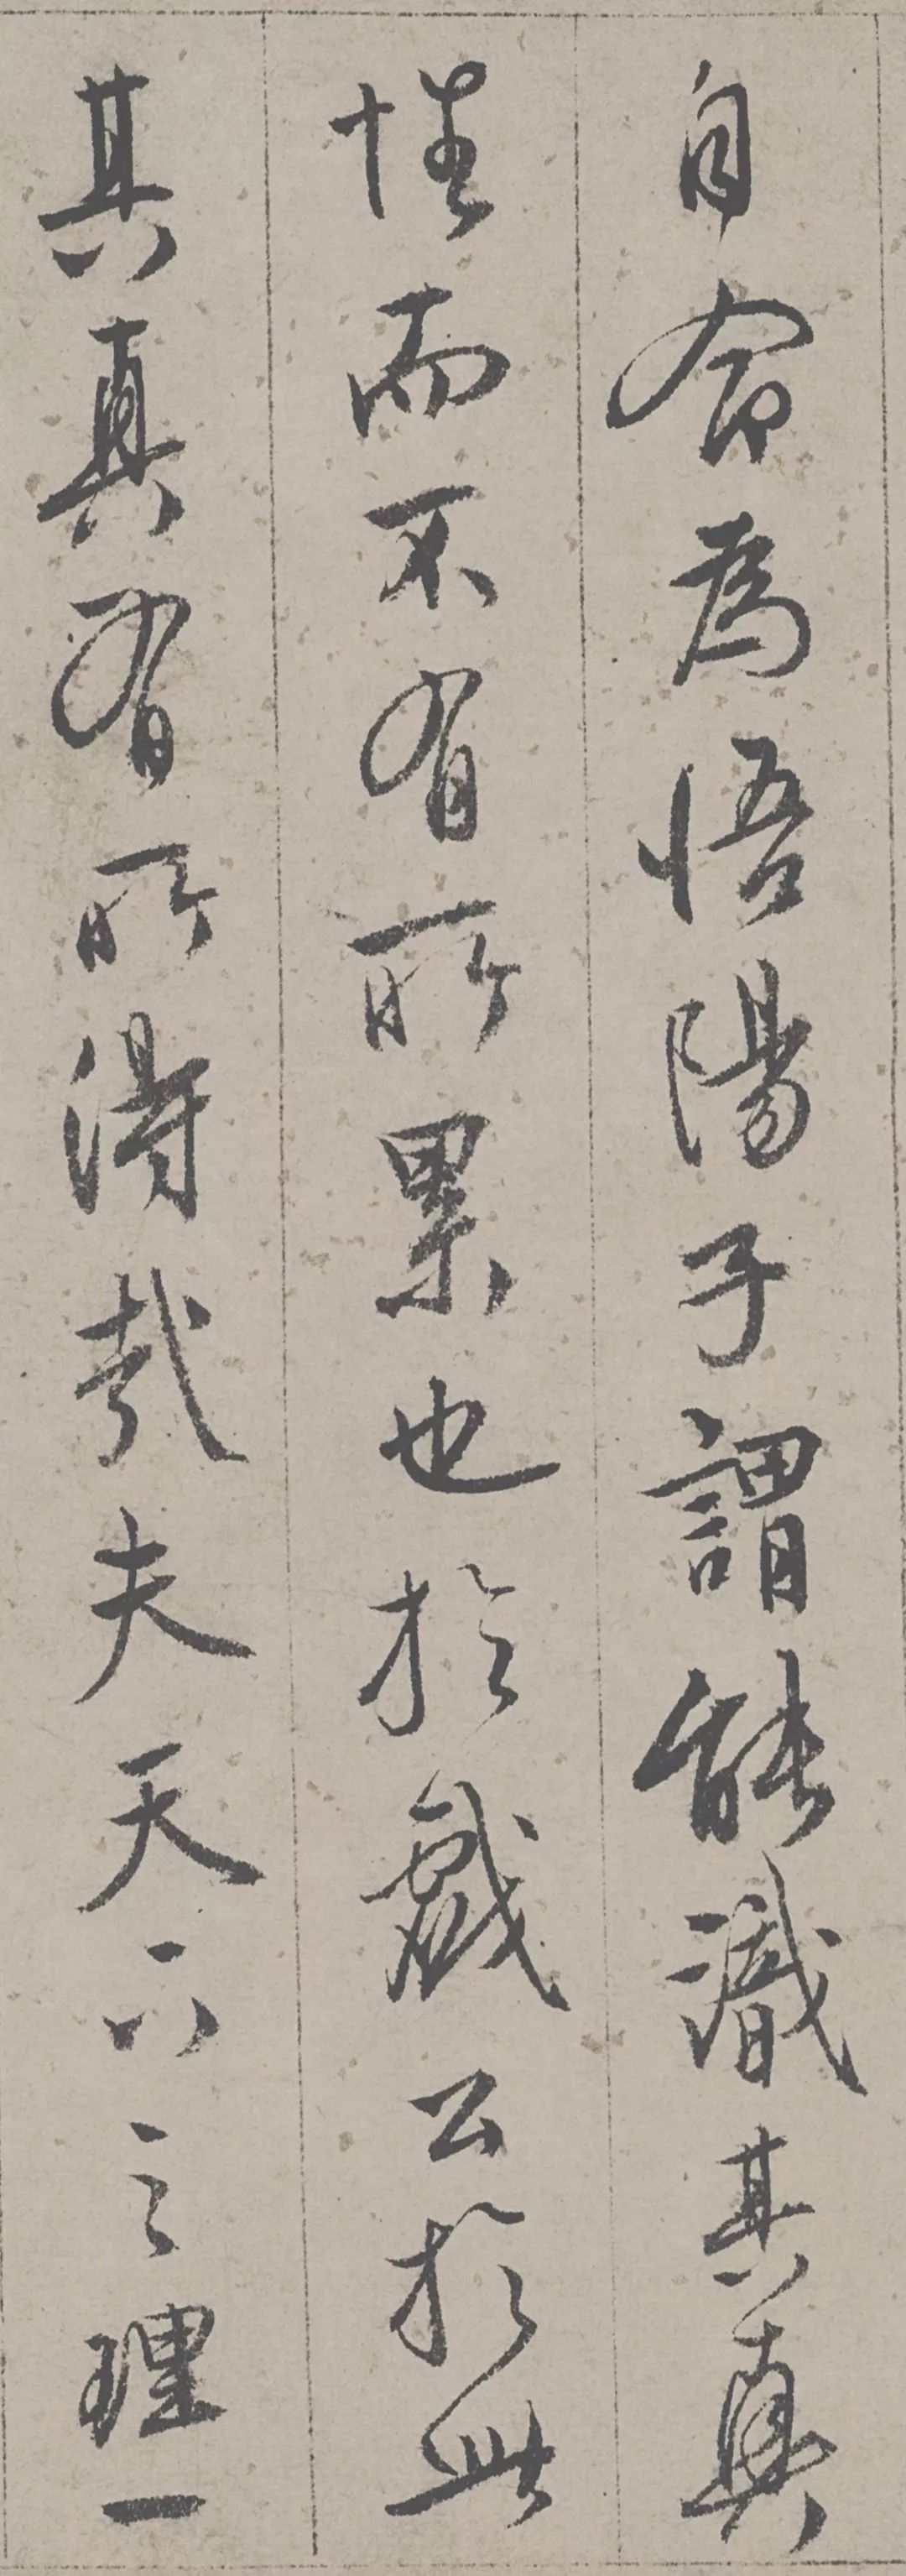 自命為悟陽子謂能識其真
性而不有所累也於戲公於此
其真有所得哉夫天下之理一